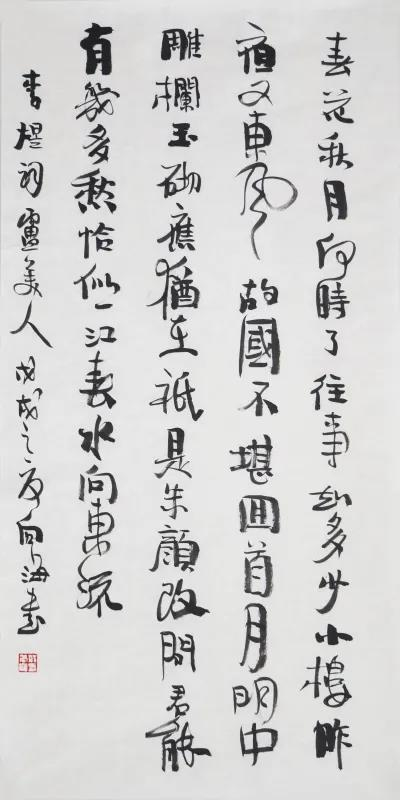 春花秋月何時了往事知多少小樓昨
夜又東風故國不堪回首月明中
雕欄玉砌應猶在祇是朱顏改問君能
有幾多愁恰似一江春水向東流
李煜詞虞美人 戊戌之夏向海書